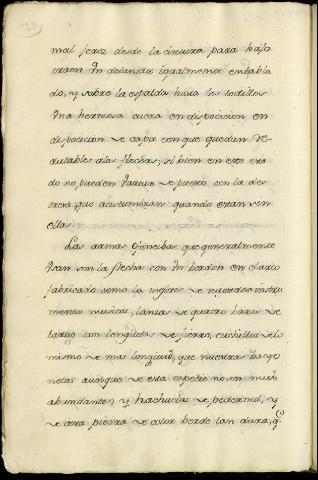 mal feroz desde la cintura para bajo
traen un delantar igualmente entabla
do, y sobre la espalda hasta los todillos
una hermosa cuera en disposicion en
disposicion de capa con que quedan
a las flechas; si bien en este esta
do no pueden de puero con la des
treza que acostumbran quando estan sen
ellas.
Las armas ofencibas que generalmente
usan son la flecha con un bordon en el arco
fabricado como la mejor de nuestros instru
mentos musicos, lanza de quatro baras de
largo con lenguetas de fierro, cuchillos de lo
mismo de mas longitud, que nuestras bayo
netas aunque de esta especie no son mui
abundantes, y hachuelas de pedernal, y
de otra piedra de color berde tan dura, q.